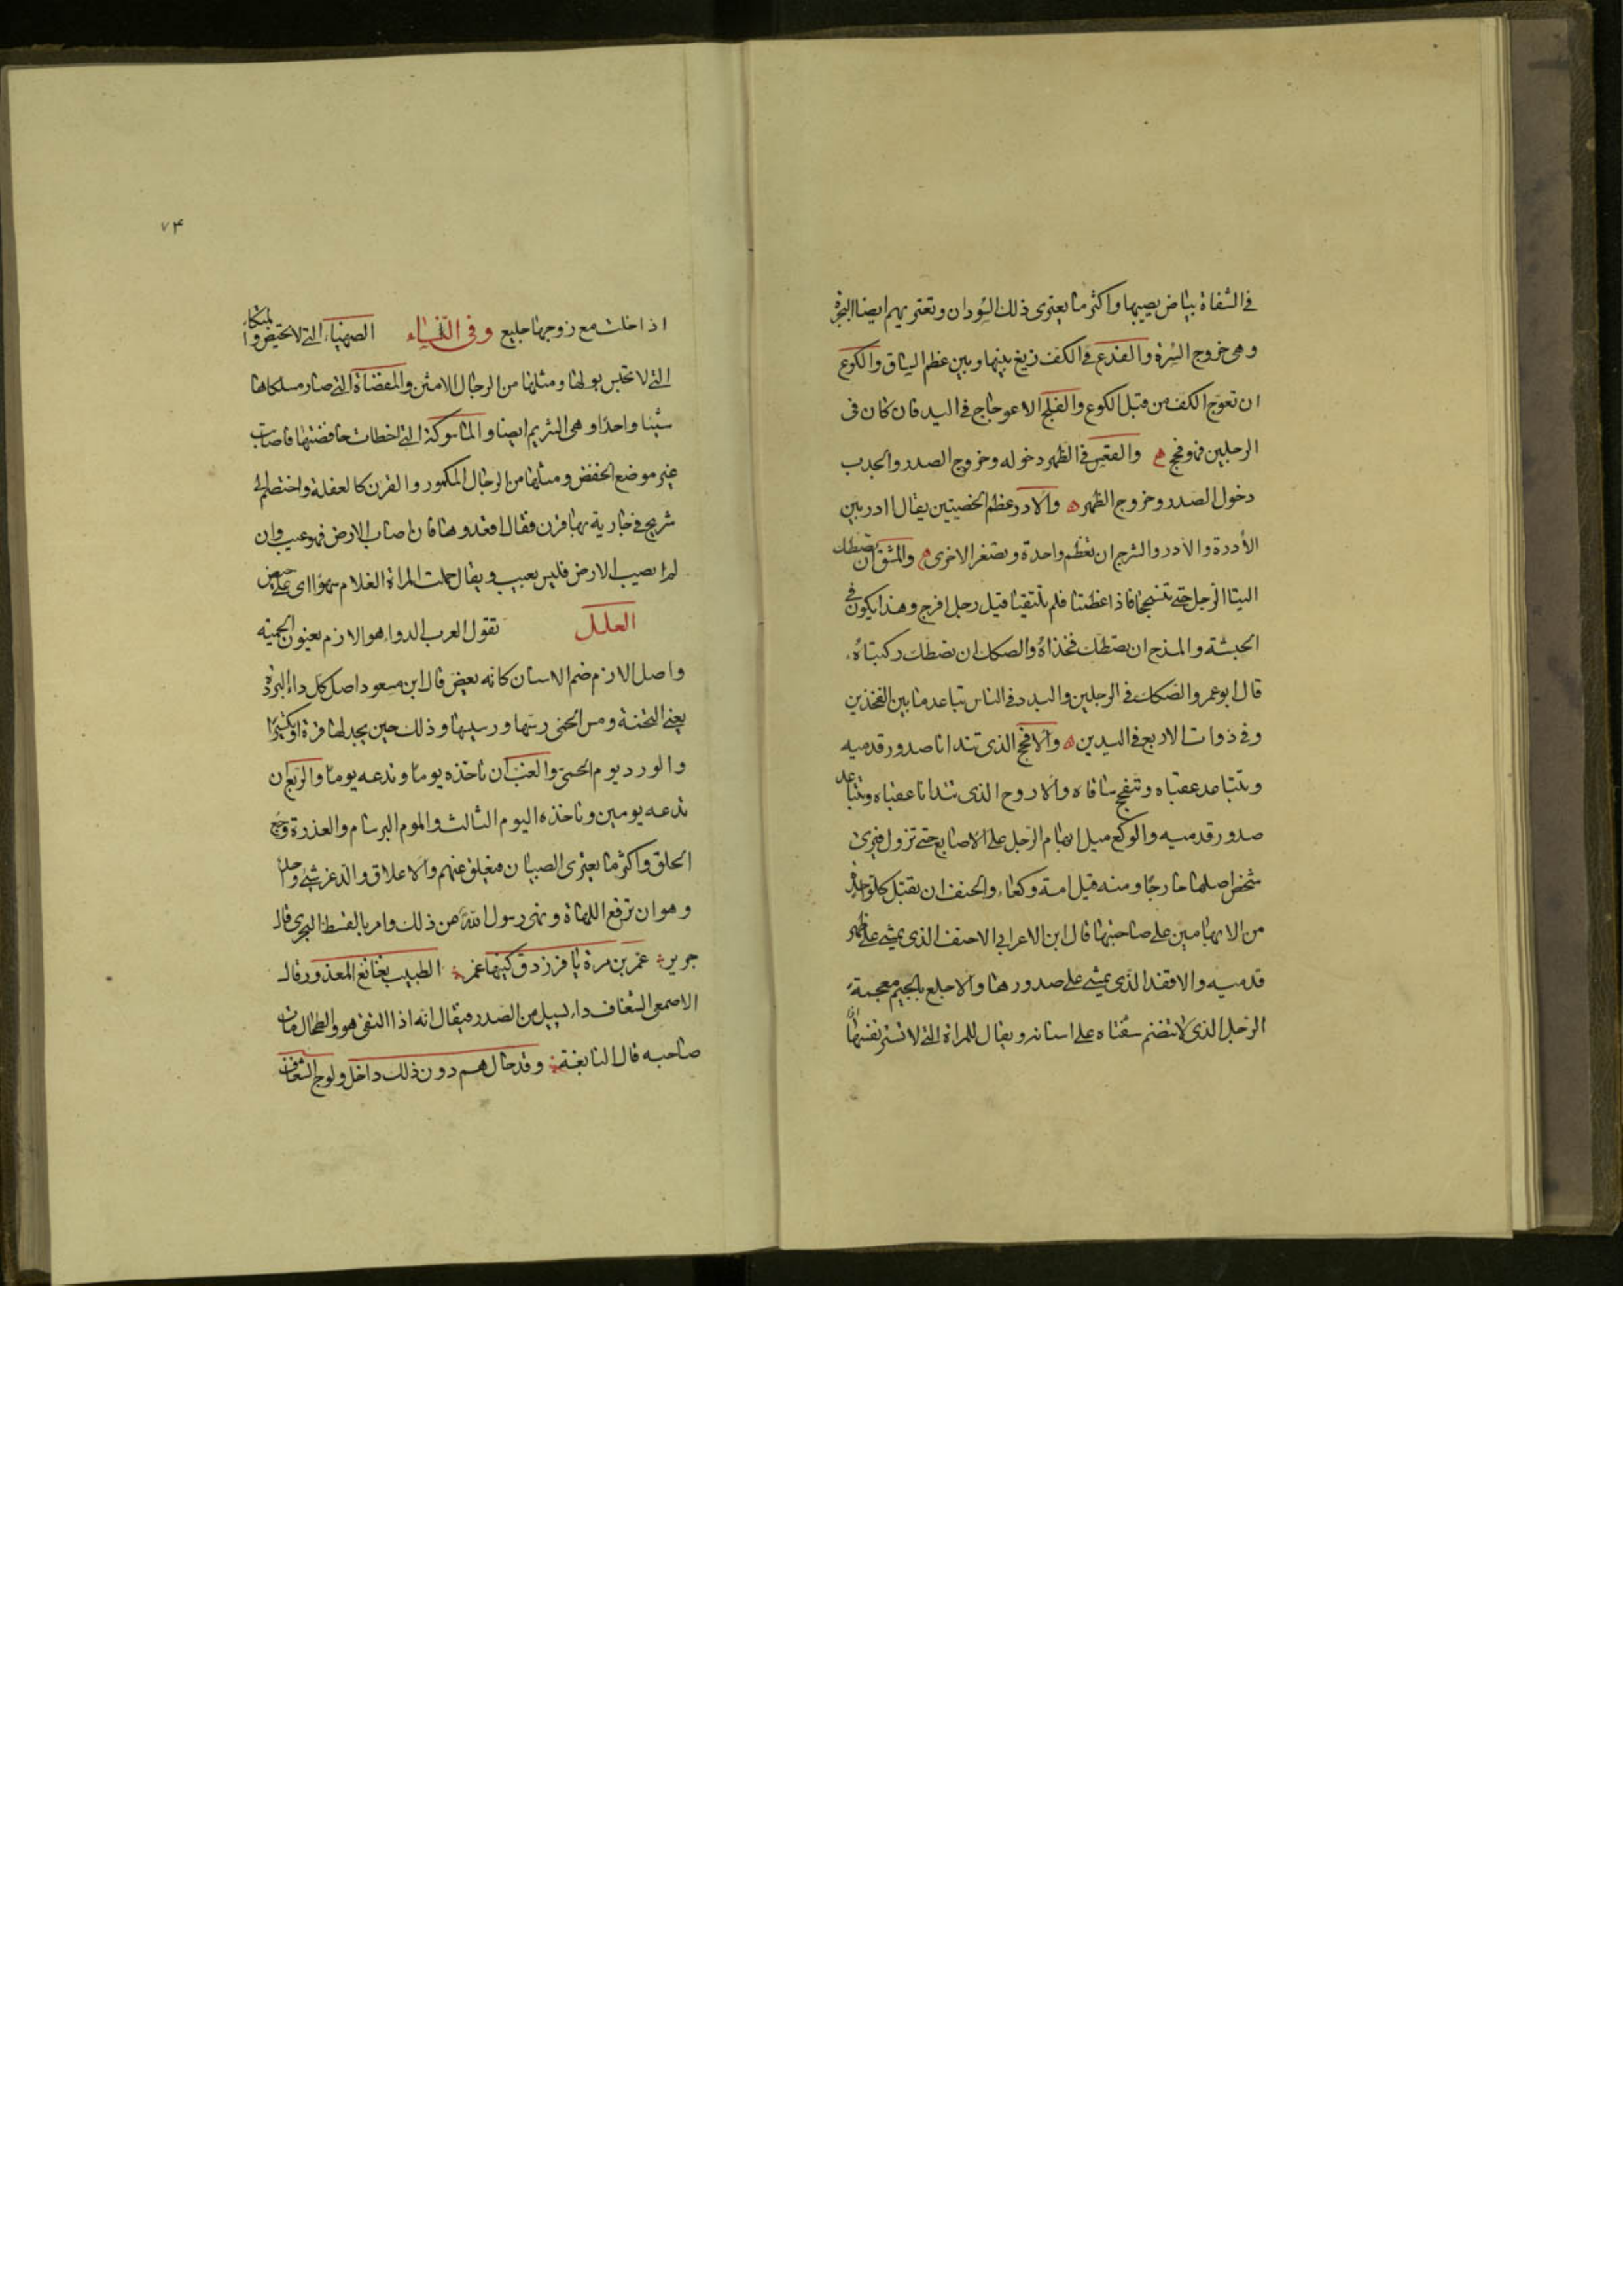 في الشفاة بياض يصيبها واكثر ما يعترى ذلك السودان وتعتريهم ايضا البجرة
وهى خروج السرة والفدع في الكف زيغ بينها وبين عظم الساق والكوع
ان تعوج الكف من قبل الكوع والفلج الاعوجاج في اليد فان كان فى
الرجلين فهو فحج ه والقعس في الظهر دخوله وخروج الصدر والحدب
دخول الصدر وخروج الظهر ه والادر عظم الخصيتين يقال ادر بين
الأدرة والادر والشرج ان تعظم واحدة وتصغر الاخرى ه والمشق ان تصطك
اليتا الرجل حتى تنسحجا فاذا عظمتا فلم تلتقيا قيل رجل افرج وهذا يكون في
الحبشة والمذح ان تصطك فخذاه والصكك ان تصطك ركبتاه
قال ابو عمرو الصكك في الرجلين والبدد في الناس تباعد ما بين الفخذين
وفي ذوات الاربع في اليدين ه والافحج الذى تتدانا صدور قدميه
وتتباعد عقباه وتنفحج ساقاه والاروح الذى تتدانا عقباه وتتباعد
صدور قدميه والوكع ميل ابهام الرجل على الاصابع حتى تزول فيرى
شخص اصلها خارجا ومنه قيل امة وكعاء والحنف ان تقبل كل واحدة
من الابهامين على صاحبتها قال ابن الاعرابي الاحنف الذى يمشى على ظهر
قدميه والاقفد الذى يمشى على صدورها والاجلع بالجيم معجمة
الرجل الذى لا تنضم شفتاه على اسنانه ويقال للمراة التى لا تستر نفسها
٧٤
اذا خلت مع زوجها جليع وفى النساء الصهياء التى لا تحيض والمتكاء
التى لا تحبس بولها ومثلها من الرجال الامثن والمفضاة التى صار مسلكاها
شيئا واحدا وهى الشريم ايضا والماسوكة التى اخطات خافضتها فاصابت
غير موضع الخفض ومثلها من الرجال المكمور والقرن كالعفلة واختصم الى
شريح في جارية بها قرن فقال اقعدوها فان اصاب الارض فهو عيب وان
لم يصيب الارض فليس بعيب ويقال حملت المراة الغلام سهوا اى على حيض
العلل تقول العرب الدواء هو الازم يعنون الحمية
واصل الازم ضم الاسنان كانه بعض قال ابن مسعود اصل كل داء البردة
يعنى التخمة ومس الحمى رسها ورسيسها وذلك حين يجد لها فترة او تكسيرا
والورد يوم الحمى والغب ان تاخذه يوما وتدعه يوما والربع ان
تدعه يومين وتاخذه اليوم الثالث والموم البرسام والعذرة وجع
الحلق واكثر ما يعترى الصبيان فيعلق عنهم والاعلاق والدغر شئ واحد
وهو ان ترفع اللهاة ونهى رسول الله من ذلك وامر بالقسط البحرى قال
جرير غمز بن مرة يا فرزدق كينها غمز الطبيب نغانغ المعذور قال
الاصمعى الشغاف داء يسيل من الصدر فيقال انه اذا التقى هو والطحال مات
صاحبه قال النابغة وقد حال هم دون ذلك داخل ولوج الشغاف